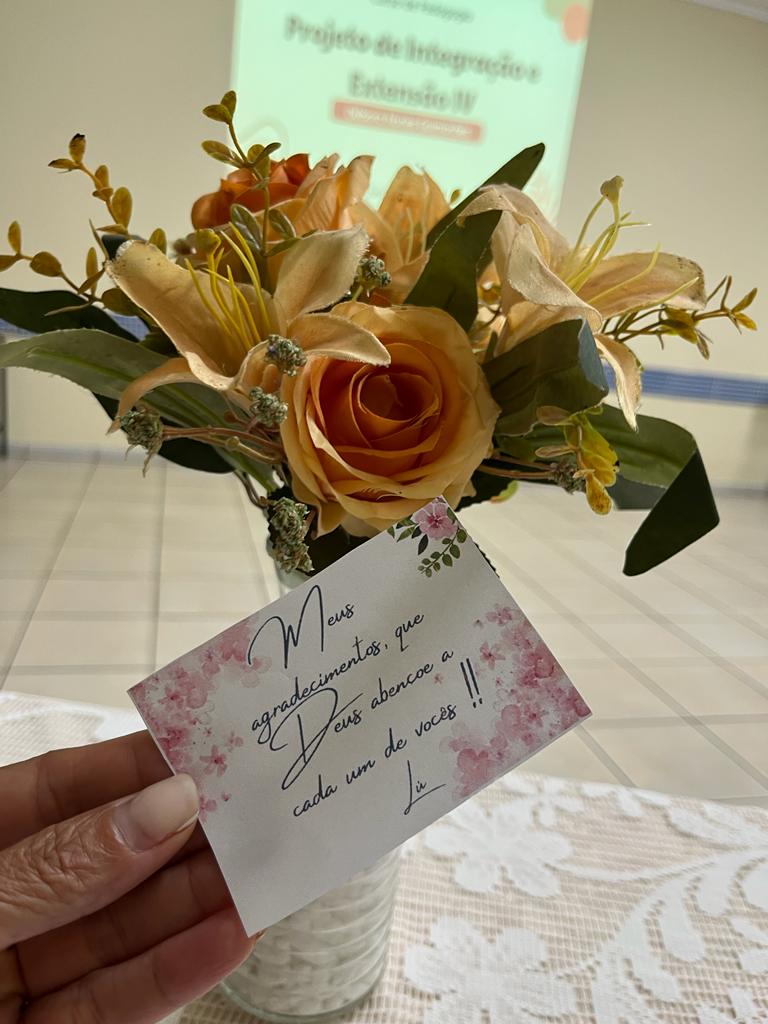 Projeto de Integração e
Extensão IV
Meus
agradecimentos, que
Deus abencoe a
cada um de vocês !!